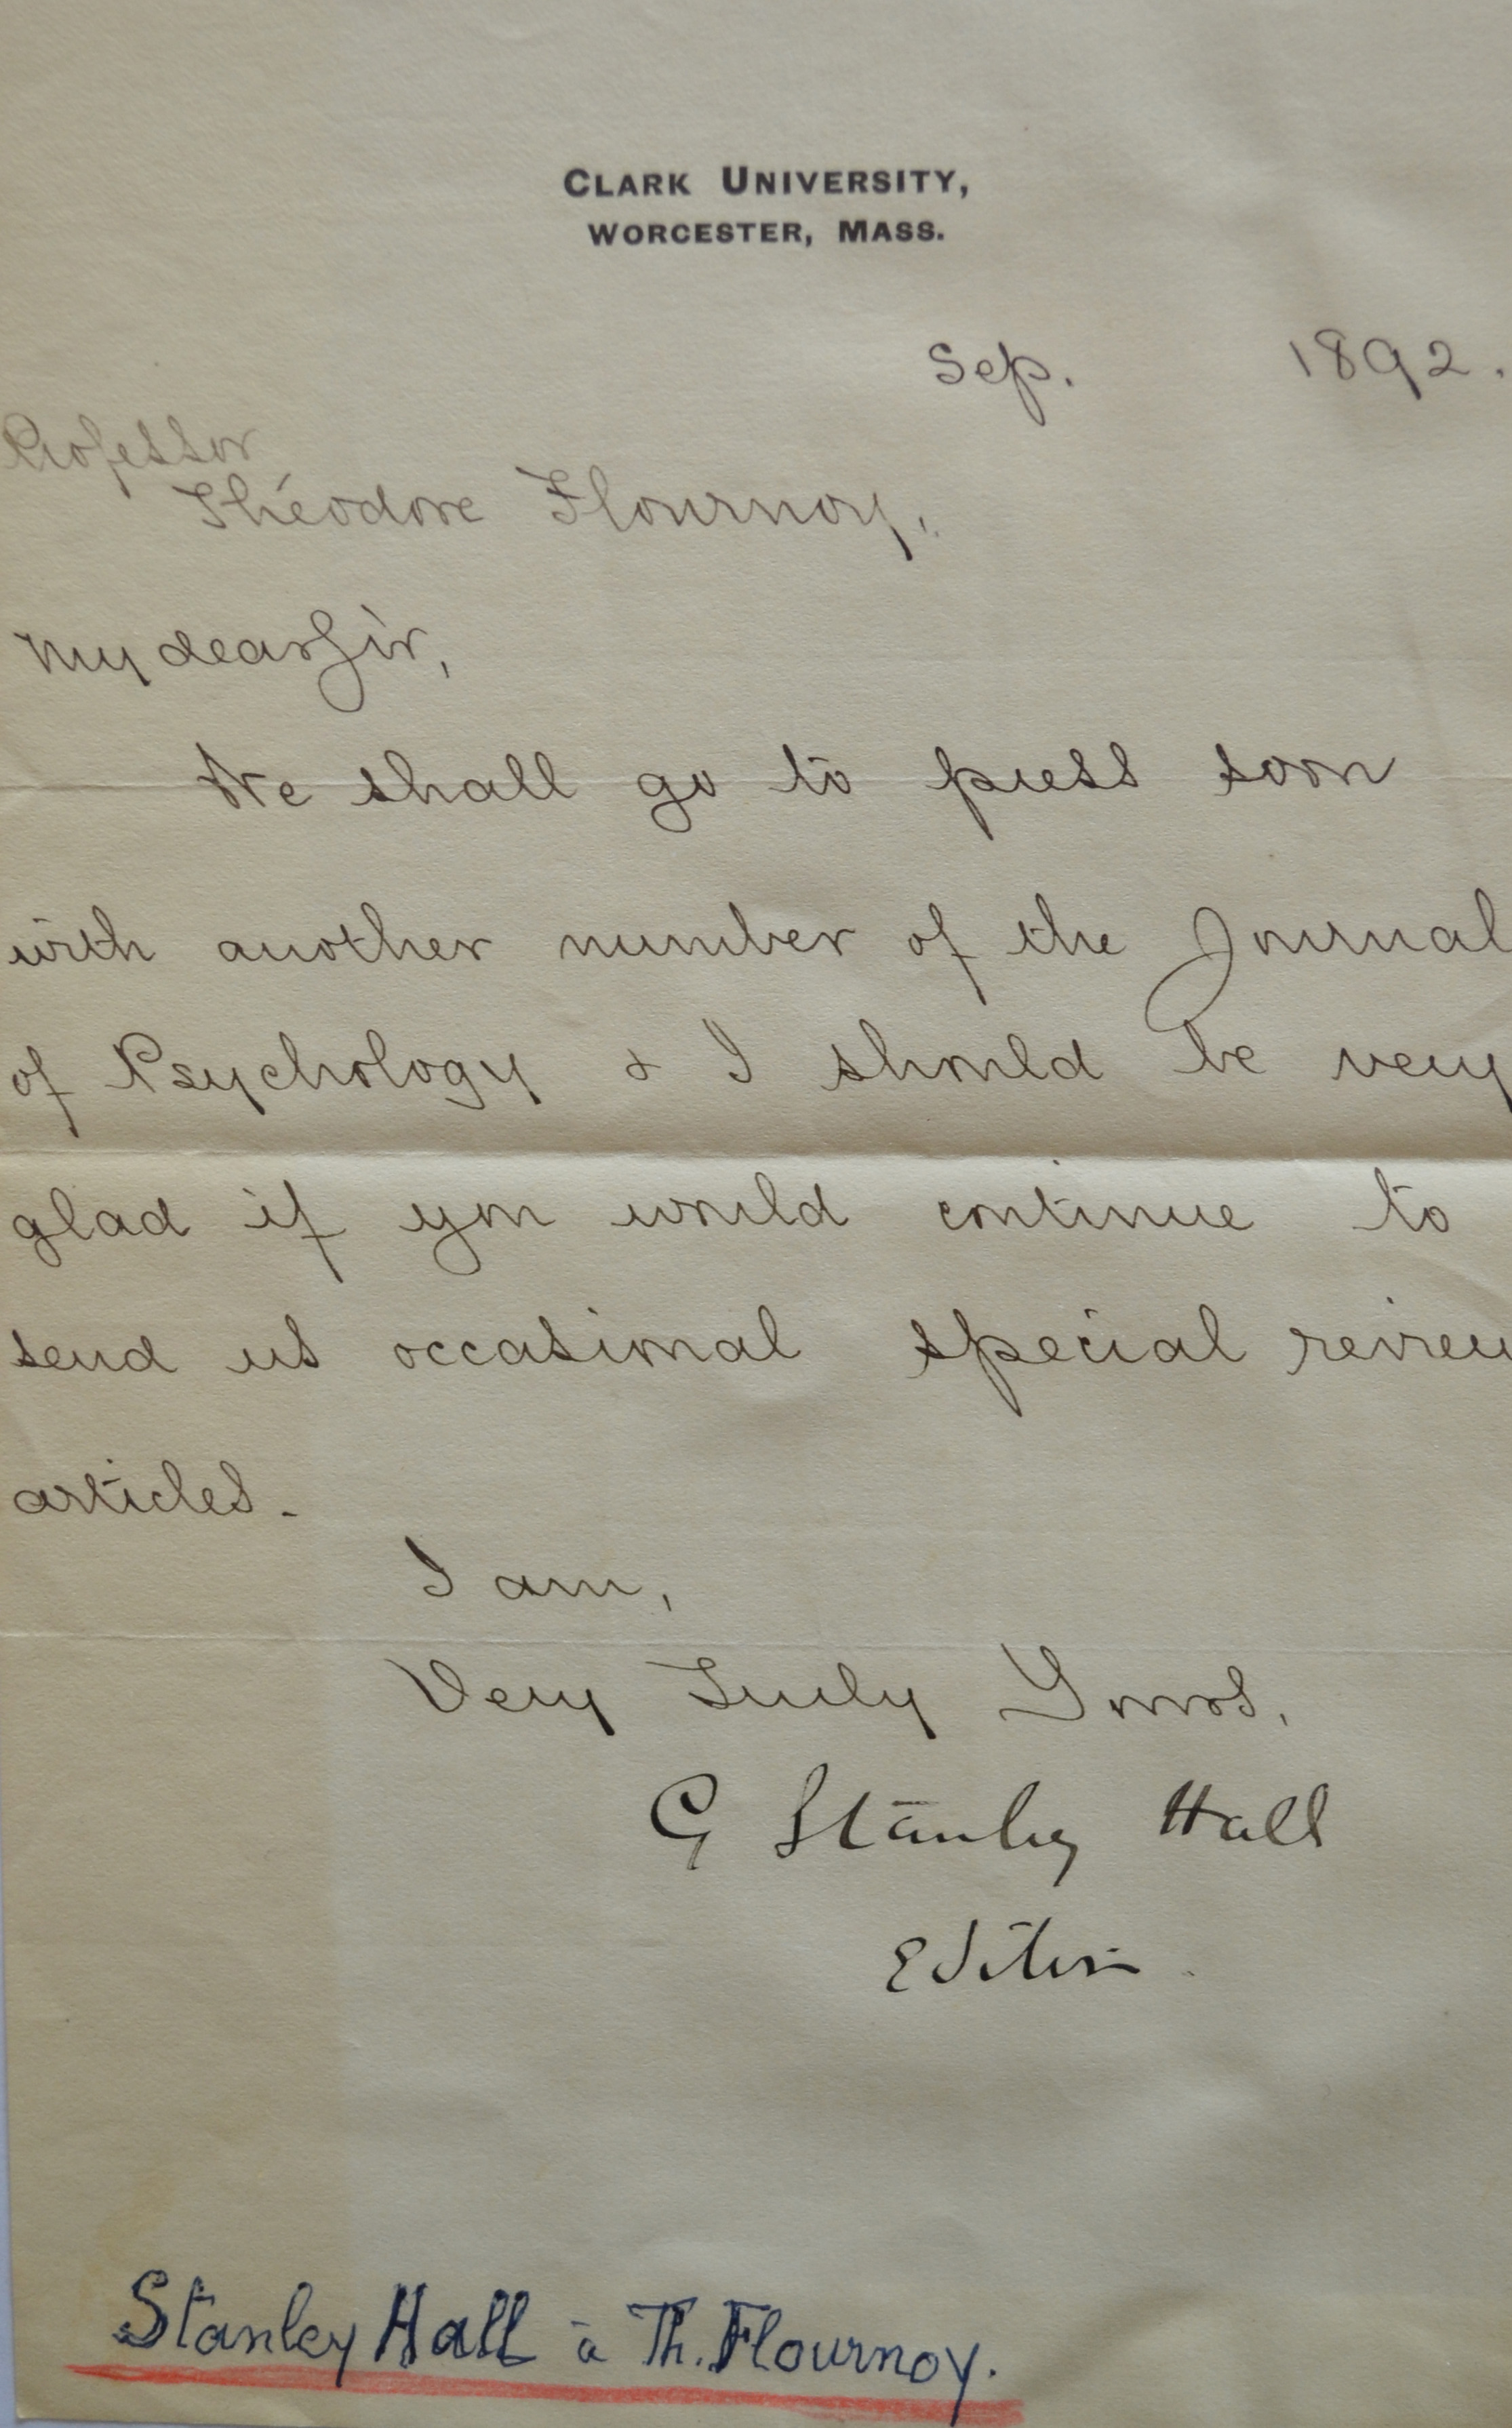 CLARK UNIVERSITY,
WORCESTER, MASS.
Sep. 1892.
Professor
Théodore Flournoy,
My dear Sir,
We shall go to press soon
with another number of the Journal
of Psychology & I should be very
glad if you would continue to
send us occasional special review
articles.
I am,
Very Truly Yours,
G Stanley Hall
Editor
Stanley Hall à Th. Flournoy.